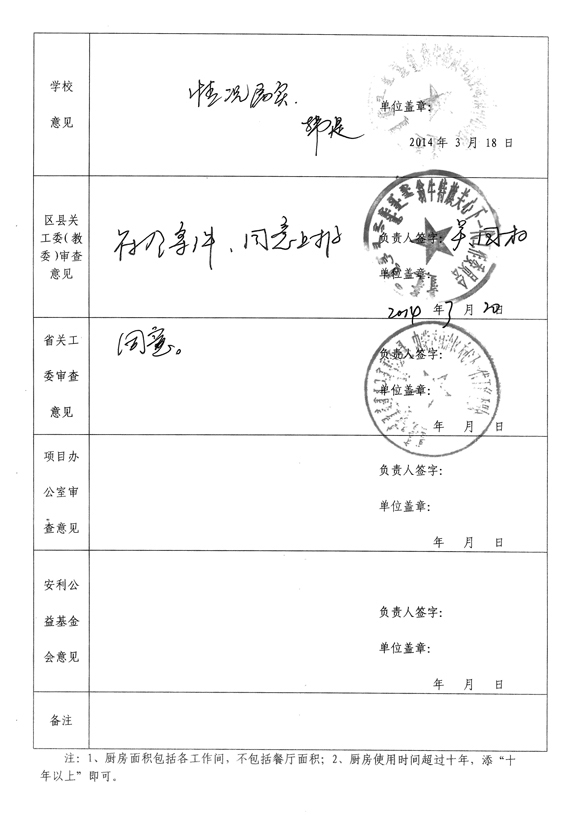 学校
意见
情况属实.
单位盖章:
2014年 3 月 18 日
区县关
工委(教
委)审查
意见
符合条件、同意上报
负责人签字:
单位盖章:
2014 年 3 月 20
省关工
委审查
意见
同意。
负责人签字:
单位盖章:
年 月 日
项目办
公室审
查意见
负责人签字:
单位盖章:
年 月 日
安利公
益基金
会意见
负责人签字:
单位盖章:
年 月 日
备注
注: 1、厨房面积包括各工作间, 不包括餐厅面积; 2、厨房使用时间超过十年, 添“十
年以上”即可。